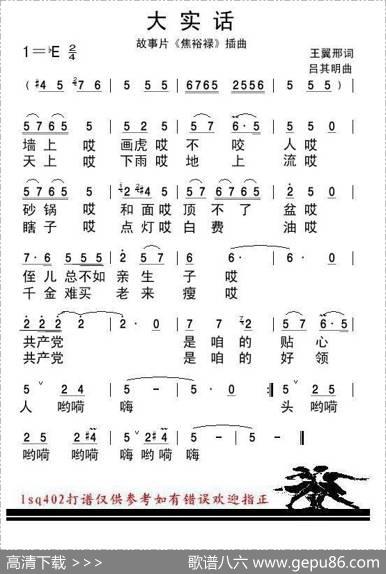 大实话
故事片《焦裕禄》插曲
1=♭E 2/4
王翼邢词
吕其明曲
(#4 5 #7 6 5 5 6765 2556 5 5 5 5)
5765 5 5 5 5 5 7 6·5 5 0
墙上 哎 画虎哎 不 咬 人哎
天上 哎 下雨哎 地 上 流哎
5765 5 2#4 5 5765 5 5 2 5 0
砂锅 哎 和面哎顶 不 了 盆哎
瞎子 哎 点灯哎白 费 油哎
7·6 2 55 5 2 5 6 6· 6· 0
侄儿总不如 亲生 子 哎
千金难买 老来 瘦 哎
2 2 2 2 2 2 2 7 7 2 5 5
共产党 是 咱 的 贴 心
共产党 是 咱 的 好 领
5 ˅ 2 4 5 - 5· 0 :‖ 5 ˅ 2 4
人 哟嗬 嗨 头 哟嗬
5 ˅ 2 4 5 ˅ 2 #4 5 2 #4 5 - 5 0
哟嗬 哟嗬 嗨 哟嗬 嗨
lsq402打谱仅供参考如有错误欢迎指正
高清下载 >>>
歌谱八六 www.gepu86.com